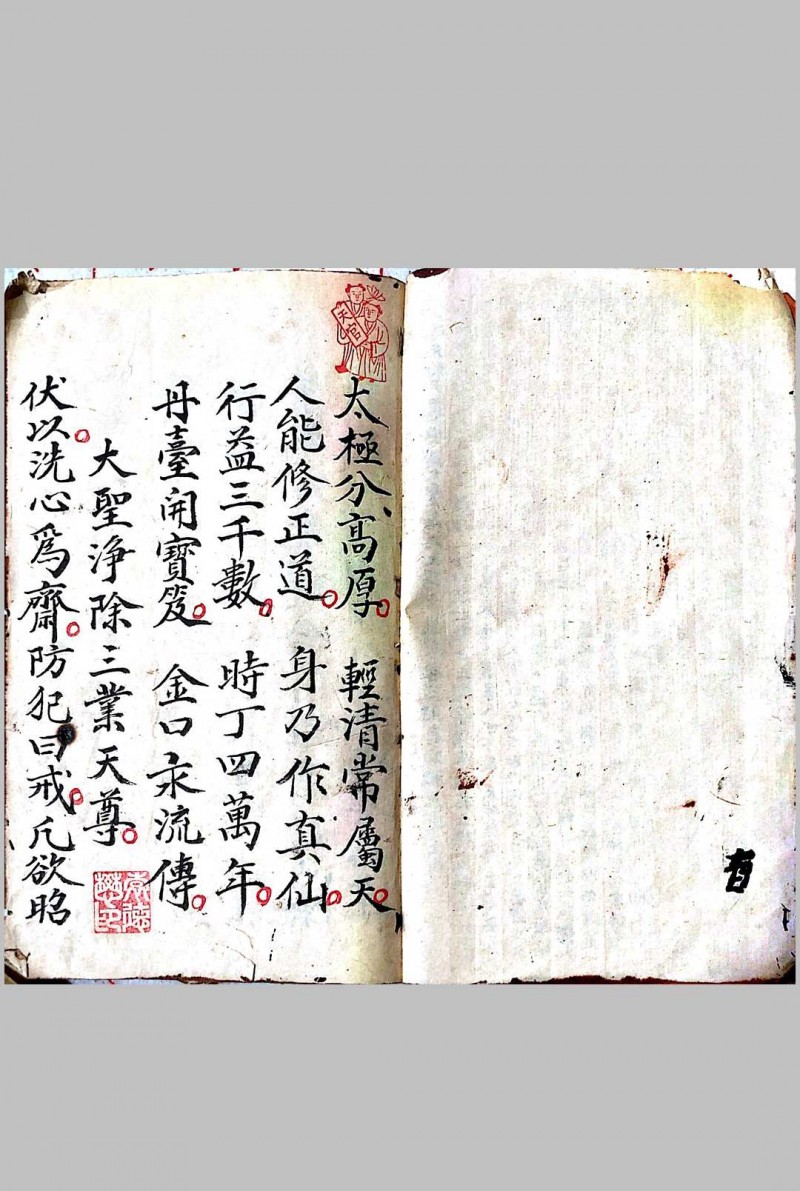 天官
太極分高厚 輕清常屬天
人能修正道 身乃作真仙
行益三千數 時丁四萬年
丹臺開寶笈 金口永流傳
大聖淨除三業天尊
伏以洗心爲齋防犯曰戒凡欲昭